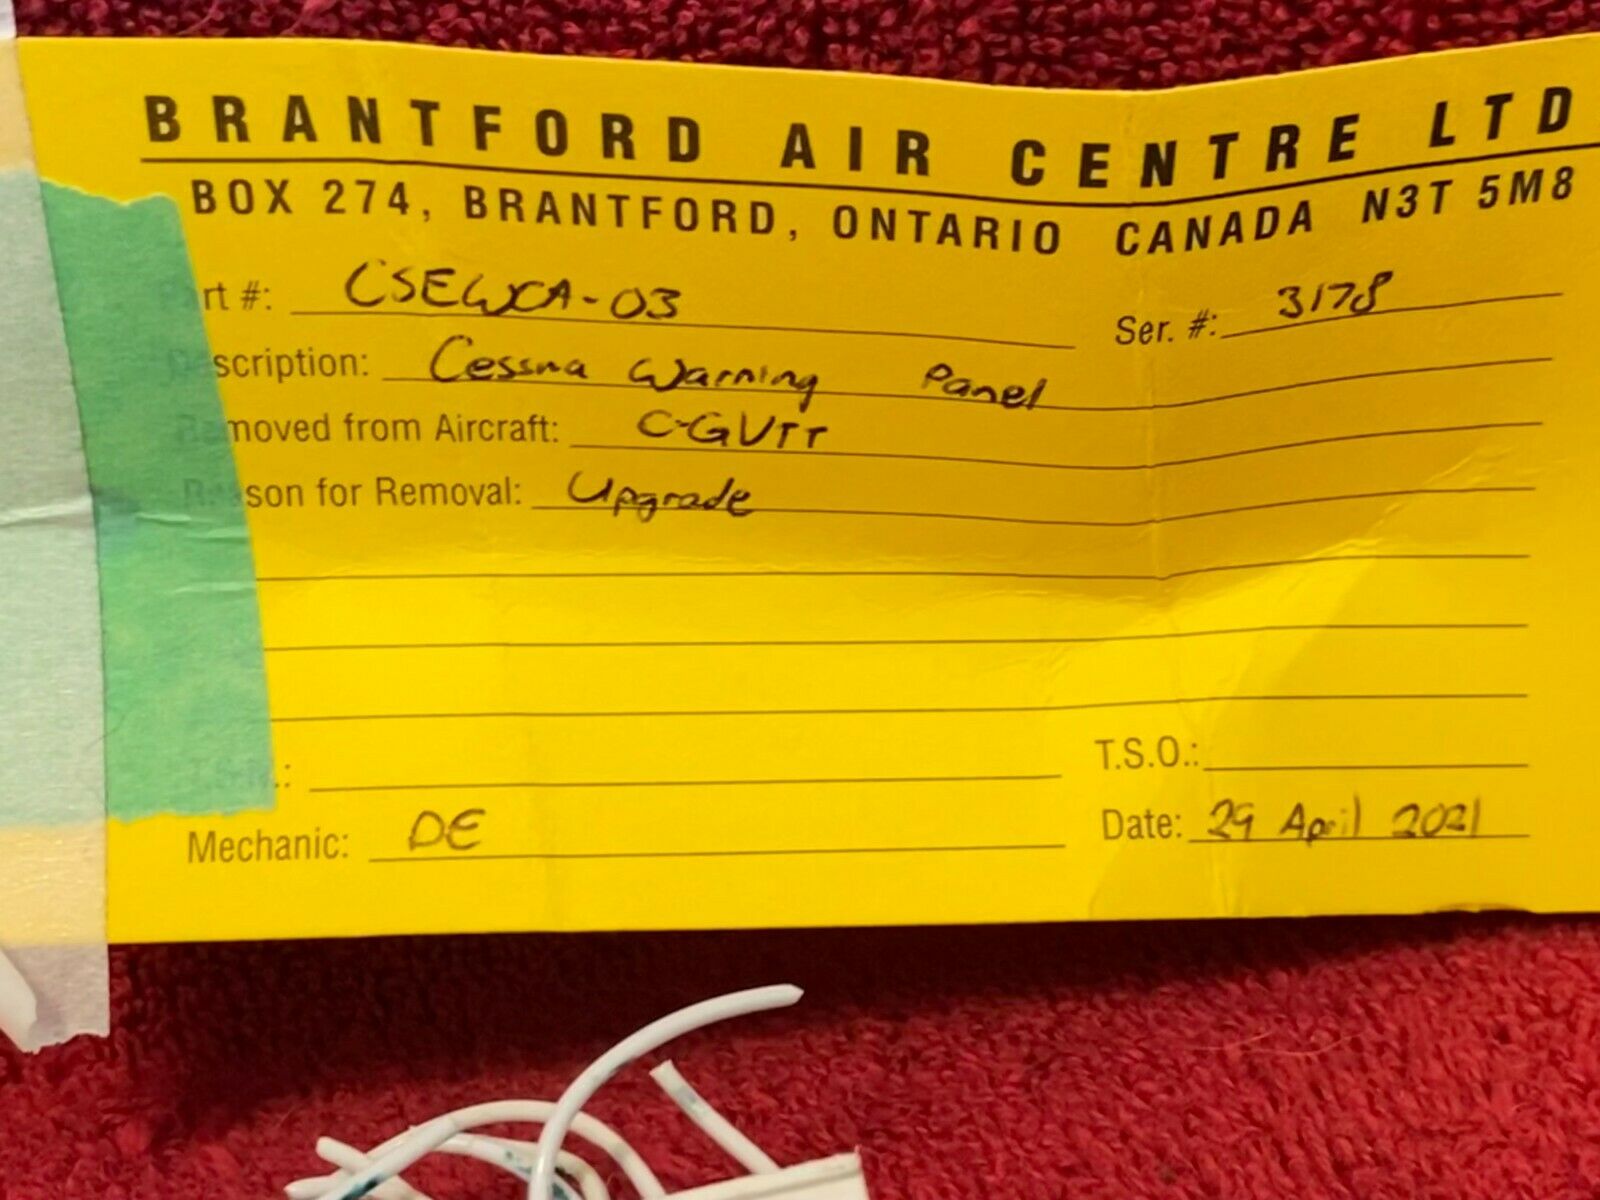 BRANTFORD AIR CENTRE LTD
BOX 274, BRANTFORD, ONTARIO CANADA N3T 5M8
Part #: CSEWCA-03 Ser. #: 3178
Description: Cessna Warning Panel
Removed from Aircraft: C-GVTT
Reason for Removal: Upgrade
T.S.N.: T.S.O.:
Mechanic: DE Date: 29 April 2021